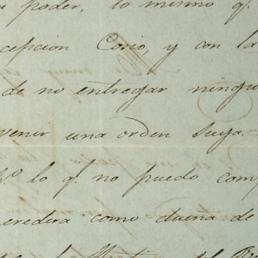 poder, lo mismo q.
cepcion Corio, y con la
de no entregar ningu
venir una orden suya.
lo q. no puedo com
eredera como dueña de